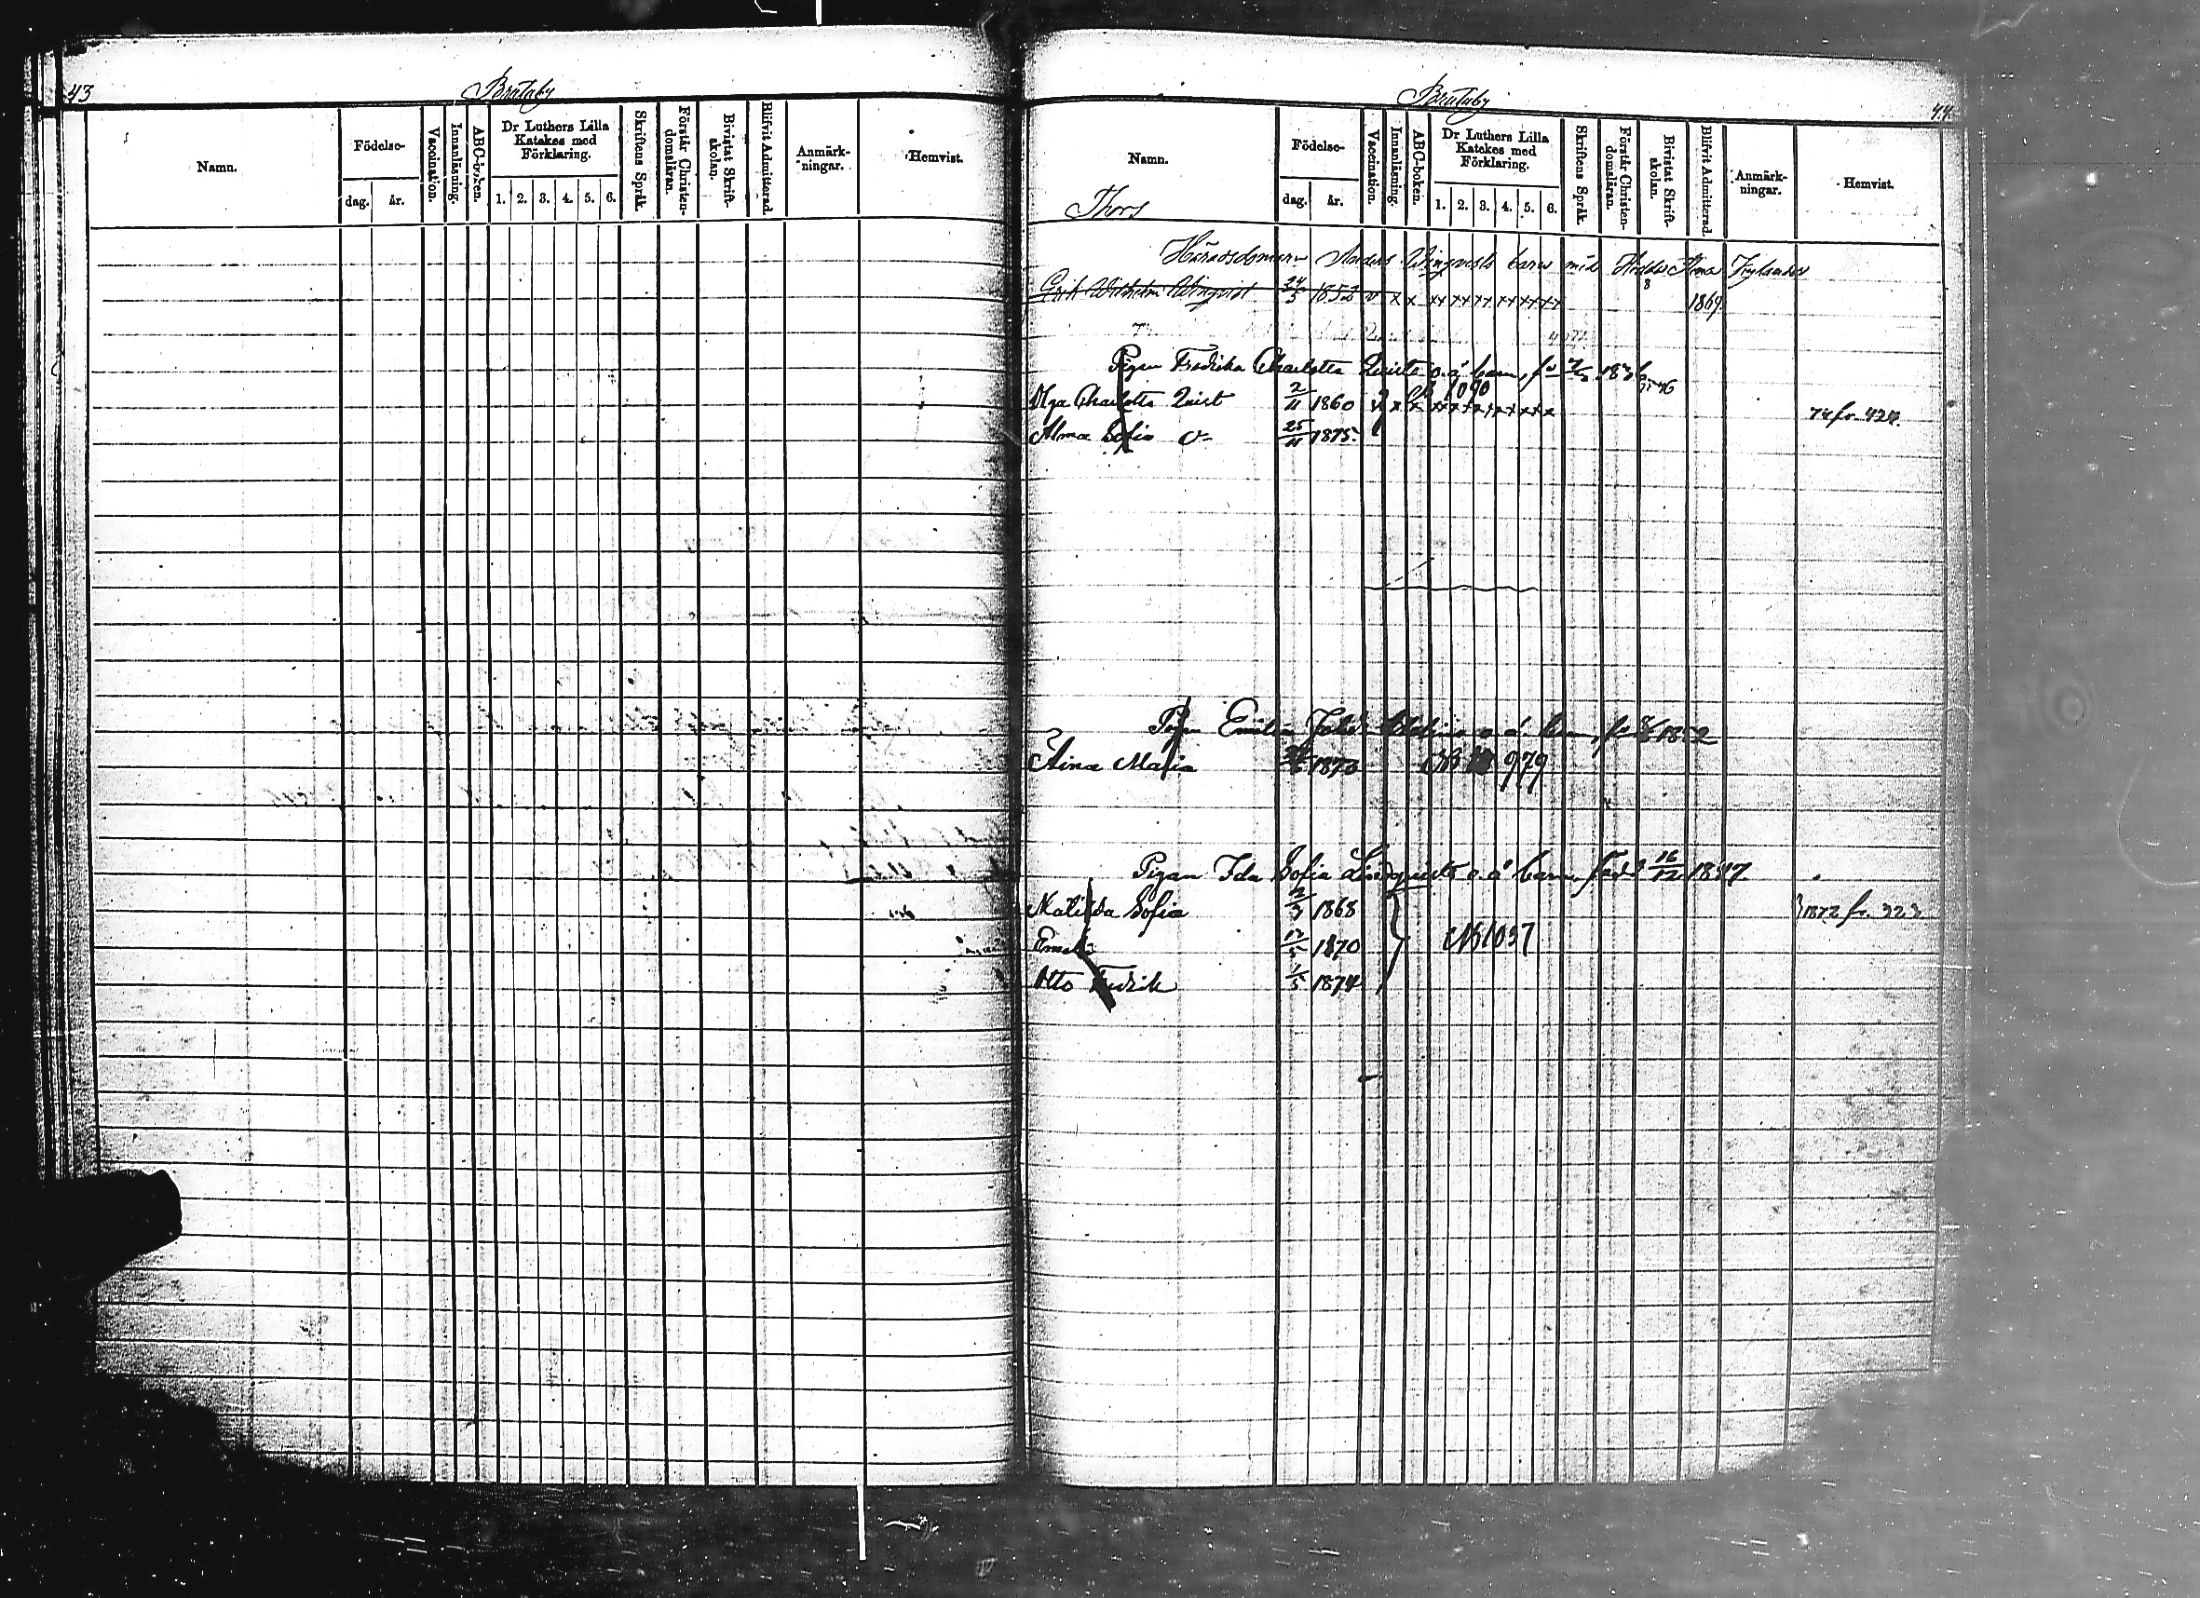 43
Brataby
Namn.
Födelse-
dag.
år.
Vaccination.
Innanläsning.
ABC-boken.
Dr Luthers Lilla
Katekes med
Förklaring.
1. 2. 3. 4. 5. 6.
Skriftens Språk.
Förstår Christen-
domsläran.
Bivistat Skrift-
skolan.
Blifvit Admitterad.
Anmärk-
ningar.
Hemvist.
Brataby
44.
Namn.
Födelse-
dag.
år.
Vaccination.
Innanläsning.
ABC-boken.
Dr Luthers Lilla
Katekes med
Förklaring.
1. 2. 3. 4. 5. 6.
Skriftens Språk.
Förstår Christen-
domsläran.
Bivistat Skrift-
skolan.
Blifvit Admitterad.
Anmärk-
ningar.
Hemvist.
Thors
Häradsdomarn Anders Winqvists barn med
Erik Wilhelm Winqvist 24/5 1852 v x x xx xx xx xx xx xx 1869
Pigan Fredrika Charlotta Quists o. ä. barn,
1090
Olga Charlotta Quist 2/11 1860 v x x xx xx xx xx xx 74 fr. 424.
Alma Sofia 25/11 1875.
Pigan o. ä. 1852
Aina Maria 979
Pigan Ida Sofia Lindqvists o. ä. barn, född 16/12 1847
Matilda Sofia 2/3 1868 1872 fr. 323
12/5 1870 N 1037
Otto Fredrik 1/5 1874